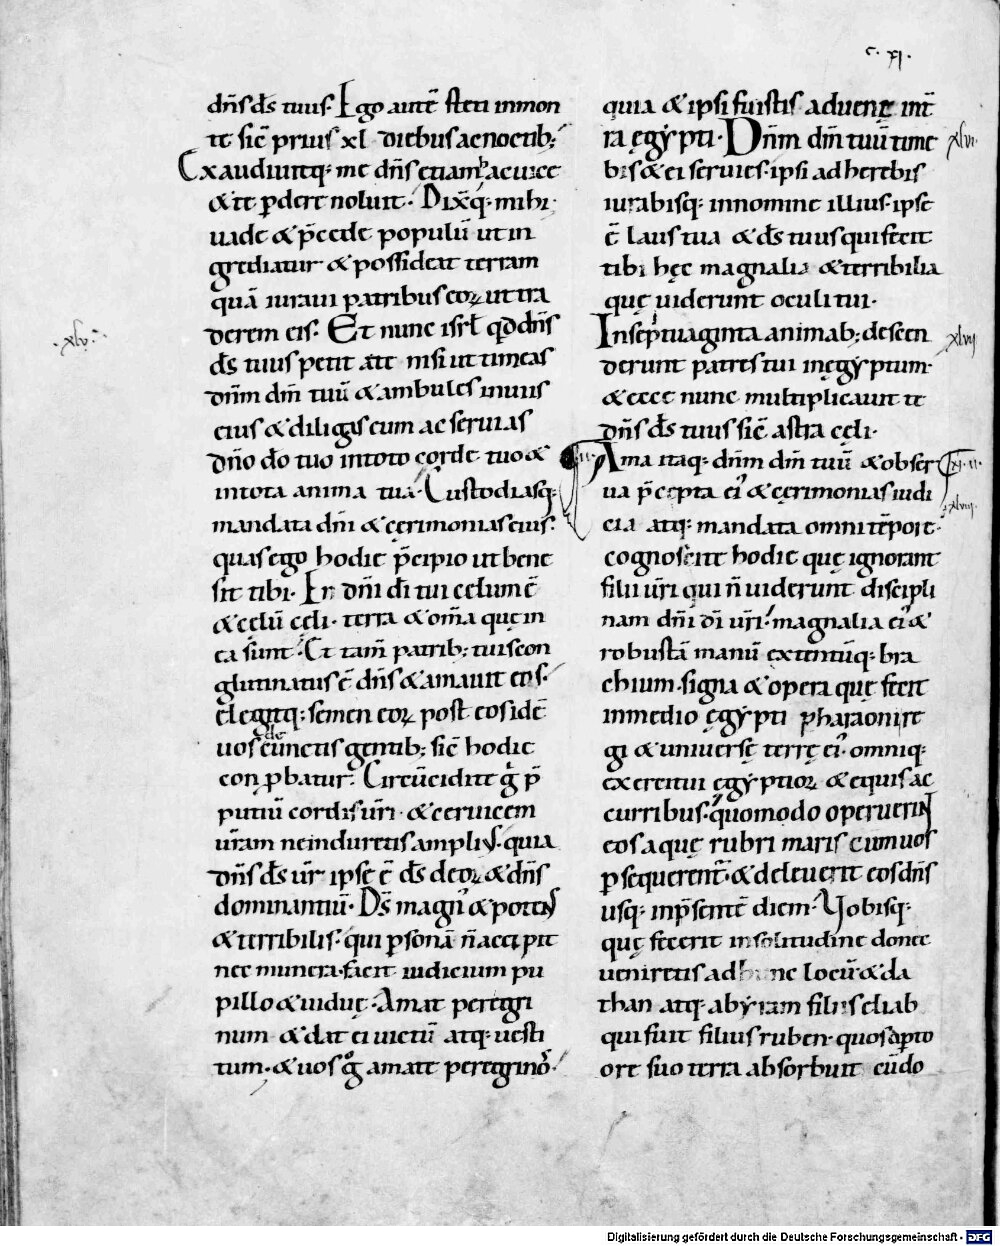 c. xi.
dn̄s ds̄ tuus. Ego aute᷒ steti inmon
te sic̄ prius xl diebus ac noctib;
Exaudiuitq; me dn̄s etiam hac uice
& te ꝑdere noluit. Dixitq; mihi.
uade & p̄cede populū ut in
grediatur & possideat terram
quā iuraui patribus eoꝝ ut tra
derem eis. Et nunc isrl̄ qd dn̄s
.xlv.
ds̄ tuus petit a te nisi ut timeas
dn̄m dm̄ tuū & ambules inuiis
eius & diligas eum ac seruias
dn̄o dō tuo intoto corde tuo &
intota anima tua. Custodiasq;
mandata dn̄i & cęrimonias eius.
quas ego hodie p̄cipio ut bene
sit tibi. En dn̄i dī tui celum ē
& celū cęli. terra & om̄a quę in
ea sunt. Et tam̄ patrib; tuis con
glutinatus ē dn̄s & amauit eos.
Elegitq; semen eoꝝ post eos id ē
uos de cunctis gentib; sic̄ hodie
conꝓbatur. Circūcidite g̊ p̄
putiū cordis ur̄i & ceruicem
ur̄am ne induretis ampliꝰ. quia
dn̄s ds̄ ur̄ ipse ē ds̄ deoꝝ & dn̄s
dominantiū. Ds̄ magnꝰ & potens
& terribilis. qui ꝑsonā n̄ accipit
nec munera. facit iudicium pu
pillo & uiduę. Amat peregri
num & dat ei uictū atq; uesti
tum. & uos g̊ amate peregrinos.
quia & ipsi fuistis aduenę int̄
ra ęgẏpti. Dn̄m dm̄ tuū time
xlvi.
bis & ei seruies. ipsi adherebis
iurabisq; innomine illius. ipse
ē laus tua & ds̄ tuus qui fecit
tibi hęc magnalia & terribilia
quę uiderunt oculi tui.
Inseptuaginta animab; descen
xlvii
derunt patres tui inęgẏptum.
& ecce nunc multiplicauit te
dn̄s ds̄ tuus sic̄ astra cęli.
Ama itaq; dn̄m dm̄ tuū & obser
xi.
ua p̄cepta eiꝰ & cęrimonias iudi
xlviii.
cia atq; mandata omni tēpore.
cognoscite hodie quę ignorant
filii ur̄i qui n̄ uiderunt discipli
nam dn̄i dī ur̄i. magnalia eiꝰ &
robustā manū extentūq; bra
chium. signa & opera quę fecit
inmedio ęgẏpti pharaoni re
gi & uniuersę terrę eiꝰ. omniq;
exercitui ęgẏptioꝝ & equis ac
curribus. quomodo operuerint
eos aquę rubri maris cum uos
ꝑsequerent᷑. & deleuerit eos dn̄s
usq; inp̄sentē diem. Uobisq;
quę fecerit insolitudine donec
ueniretis ad hunc locū. & da
than atq; abẏram filiis eliab
qui fuit filius ruben. quos aꝑto
ore suo terra absorbuit cū do
Digitalisierung gefördert durch die Deutsche Forschungsgemeinschaft - DFG